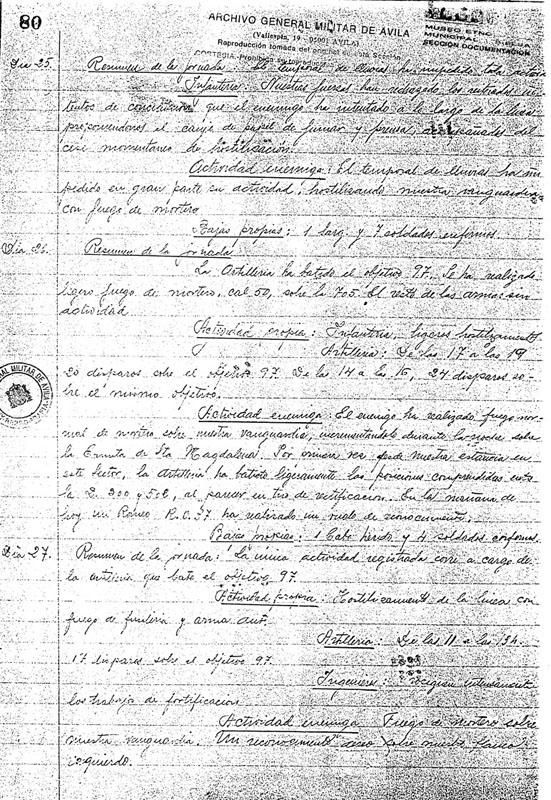 80
ARCHIVO GENERAL MILITAR DE AVILA
(Vallespin, 19 - 05001 AVILA)
Reproducción tomada del original de esta Sección
CORTESIA. Prohibida su
MUSEO ETNO
MUNICIPAL
SECCIÓN DOCUMENTACIÓN
Dia 25. Resumen de la jornada: El temporal de lluvias ha impedido toda
Infanteria: Nuestras fuerzas han rechazado los in-
tentos de que el enemigo ha intentado a lo largo de la linea
el canje de papel de fumar y prensa,
momentaneo de hostilización.
Actividad enemiga: El temporal de lluvias ha im-
pedido en gran parte su actividad, hostilizando nuestra vanguardia
con fuego de mortero
Bajas propias: 1 Sarg. y 7 soldados enfermos.
Dia 26. Resumen de la jornada:
La Artilleria ha batido el objetivo 97. Se ha realizado
ligero fuego de mortero, cal 50, sobre la 705. El resto de las armas sin
actividad
Actividad propia: Infanteria, ligeros hostilizamientos
Artilleria: De las 17 a las 19
20 disparos sobre el objetivo 97. De las 14 a las 16, 24 disparos so-
bre el mismo objetivo.
Actividad enemiga: El enemigo ha realizado fuego nor-
mal de mortero sobre nuestra vanguardia, incrementandolo durante la noche sobre
la Ermita de Sta Magdalena. Por primera vez desde nuestra estancia en
este Sector, la Artilleria ha batido ligeramente las posiciones comprendidas entre
la L. 200 y 502, al parecer en tiro de rectificacion. En la mañana de
hoy un Romeo R.O.37 ha realizado un vuelo de reconocimiento.
Bajas propias: 1 Cabo herido y 4 soldados enfermos.
Dia 27. Resumen de la jornada: La única actividad registrada corre a cargo de
la artilleria que bate el objetivo 97.
Actividad propia: Hostilizamiento de la linea con
fuego de fusileria y arma aut.
Artilleria: De las 11 a las 13h.
17 disparos sobre el objetivo 97.
Ingenieros: intensamente
los trabajos de fortificacion
Actividad enemiga Fuego de mortero sobre
nuestra vanguardia. Un reconocimiento aereo sobre nuestro flanco
izquierdo.
MILITAR DE AVILA